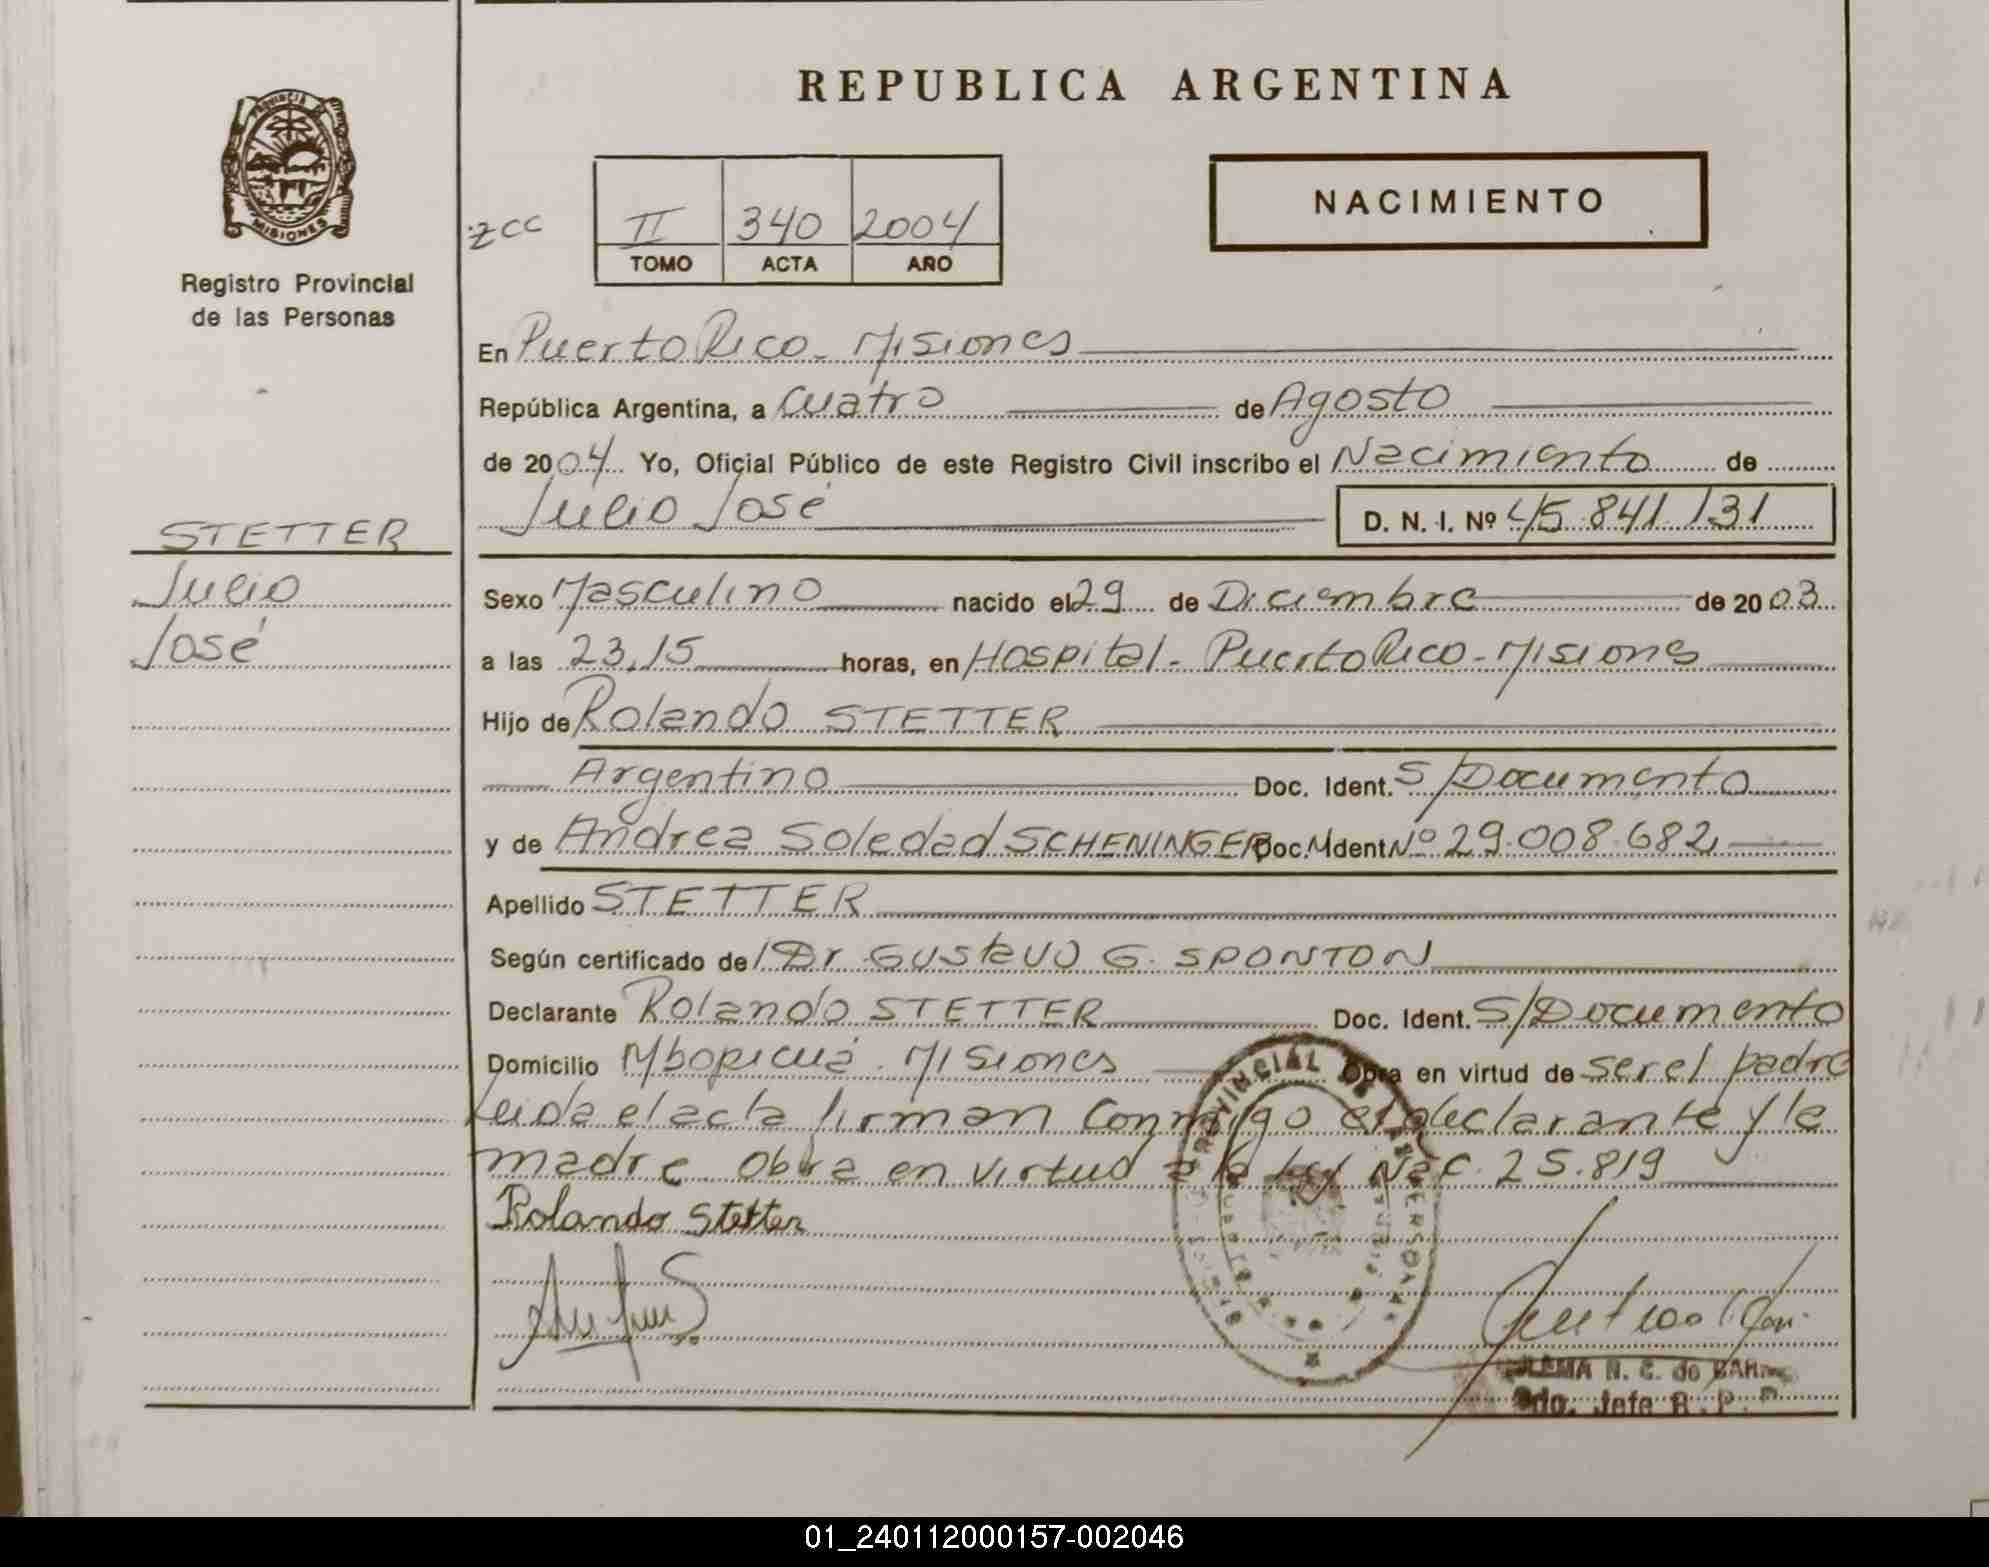 REPUBLICA ARGENTINA
PROVINCIA DE
MISIONES
Registro Provincial
de las Personas
zcc
II 340 2004
TOMO ACTA AÑO
NACIMIENTO
En Puerto Rico - Misiones
República Argentina, a Cuatro de Agosto
de 2004 Yo, Oficial Público de este Registro Civil inscribo el Nacimiento de
Julio José D. N. I. Nº 45.841.131
STETTER
Julio
José
Sexo Masculino nacido el 29 de Diciembre de 2003
a las 23,15 horas, en Hospital - Puerto Rico - Misiones
Hijo de Rolando STETTER
Argentino Doc. Ident. S/Documento
y de Andrea Soledad SCHENINGER Doc. Ident. Nº 29.008.682
Apellido STETTER
Según certificado de Dr Gustavo G. SPONTON
Declarante Rolando STETTER Doc. Ident. S/Documento
Domicilio Mbopicuá - Misiones Obra en virtud de ser el padre
Leida el acta firman conmigo el declarante y la
madre. Obra en virtud a la Ley Nac. 25.819
Rolando Stetter
N. C. de
Jefe R. P.
01_240112000157-002046